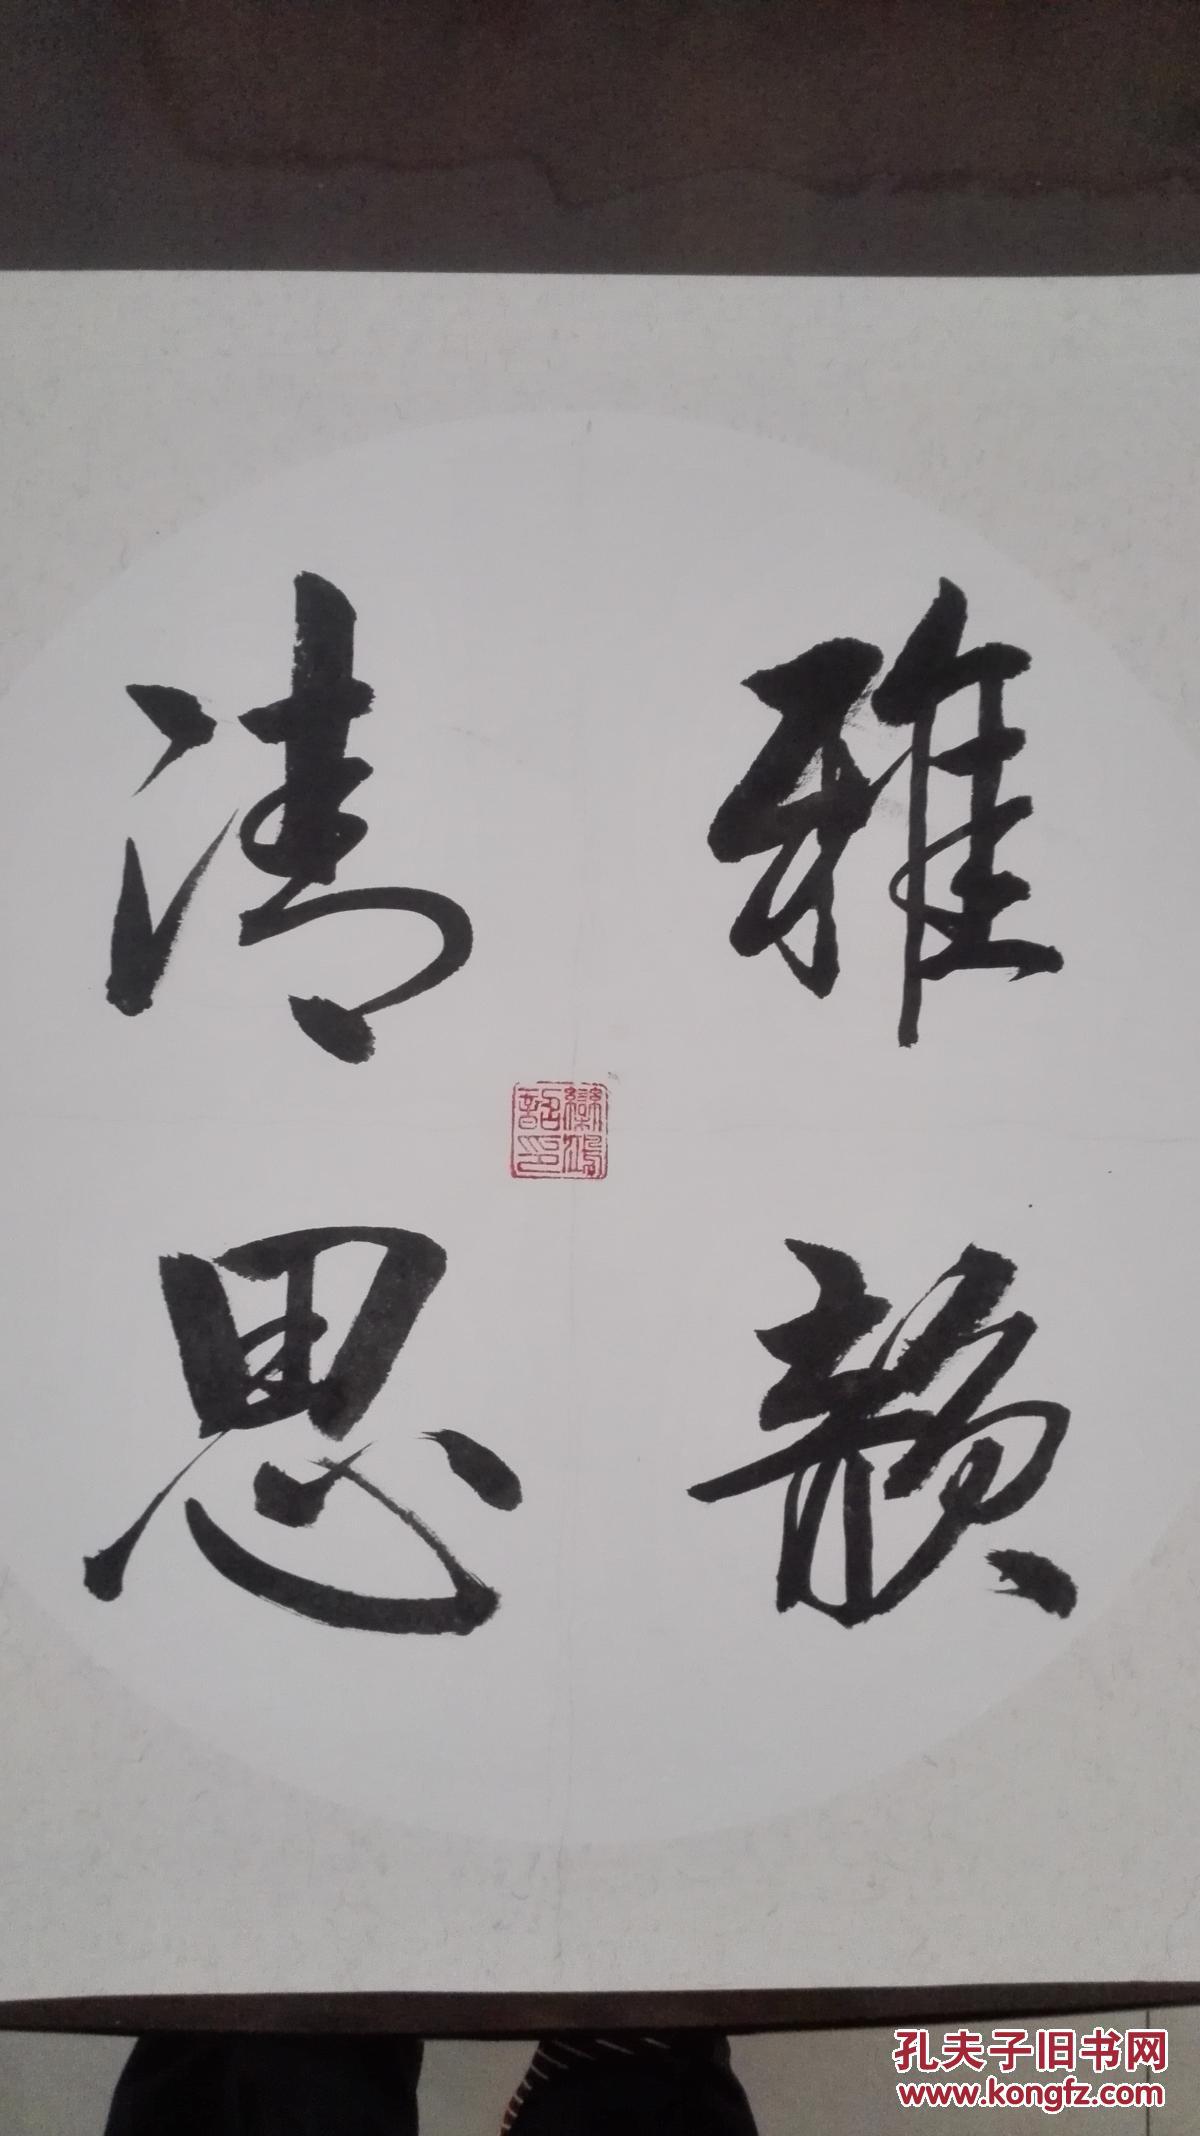 雅韵
清思
孔夫子旧书网
www.kongfz.com